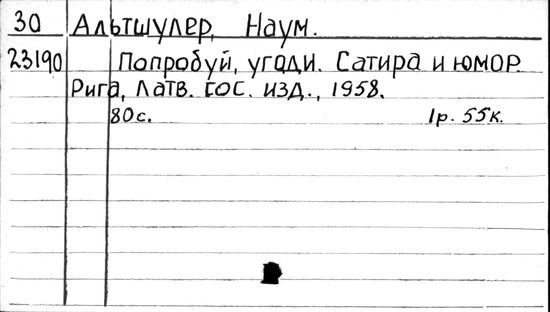 30 Альтшулер, Наум.
23190 Попробуй, угади. Сатира и юмор.
Рига, Латв. гос. изд., 1958.
80с. 1р. 55к.